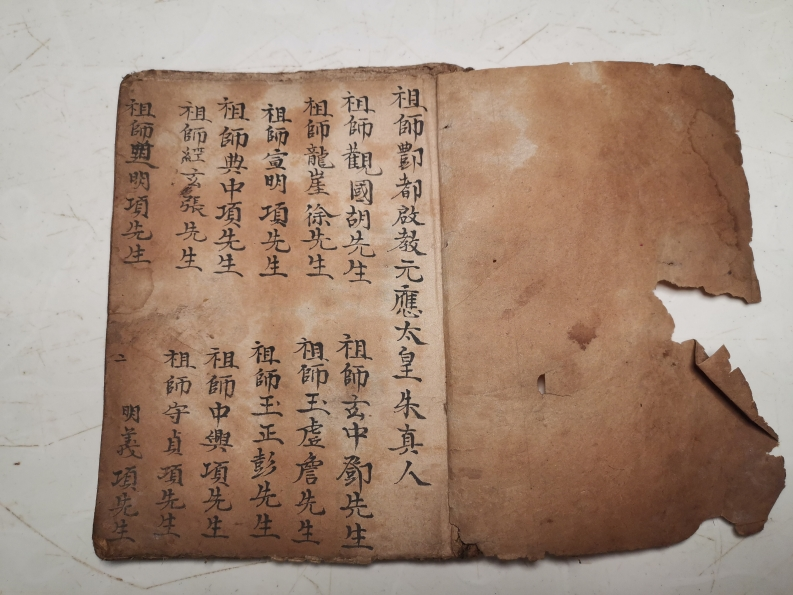 祖師酆都啟教元應太皇朱真人
祖師觀國胡先生 祖師玄中鄧先生
祖師龍崖徐先生 祖師玉虛詹先生
祖師宣明項先生 祖師玉正彭先生
祖師典中項先生 祖師中興項先生
祖師經玄張先生 祖師守貞項先生
祖師典明項先生 二 明義項先生